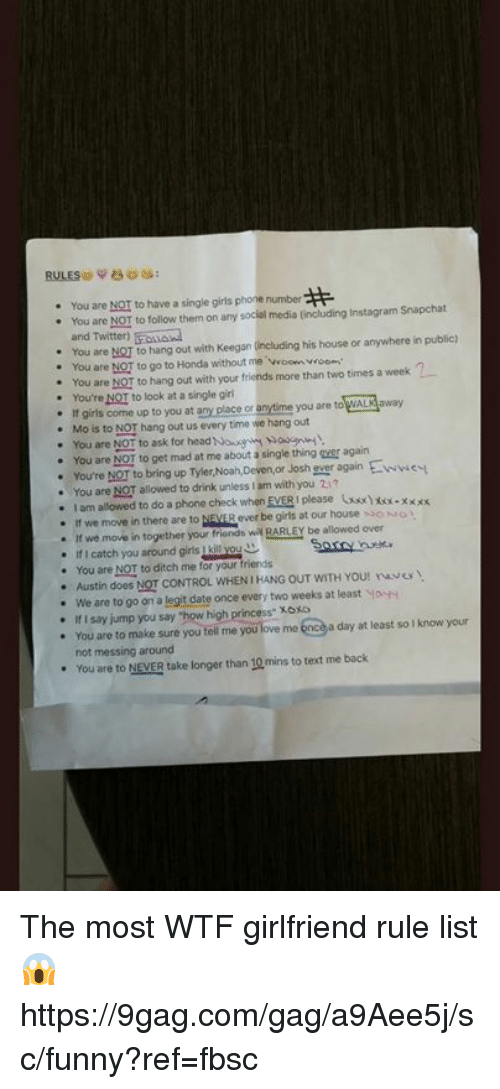 RULES :
• You are NOT to have a single girls phone number #
• You are NOT to follow them on any social media (including Instagram Snapchat
and Twitter) Follow
• You are NOT to hang out with Keegan (including his house or anywhere in public)
• You are NOT to go to Honda without me "vroom vroom"
• You are NOT to hang out with your friends more than two times a week 2
• You're NOT to look at a single girl
• If girls come up to you at any place or anytime you are to WALK away
• Mo is to NOT hang out us every time we hang out
• You are NOT to ask for head Naughty Naughty!
• You are NOT to get mad at me about a single thing ever again
• You're NOT to bring up Tyler,Noah,Deven,or Josh ever again Ewwey
• You are NOT allowed to drink unless I am with you 21?
• I am allowed to do a phone check when EVER I please (xxx) xxx-xxxx
• If we move in there are to NEVER ever be girls at our house NO NO!
• If we move in together your friends will RARLEY be allowed over
• If I catch you around girls I kill you Sorry
• You are NOT to ditch me for your friends
• Austin does NOT CONTROL WHEN I HANG OUT WITH YOU! never!
• We are to go on a legit date once every two weeks at least yayy
• If I say jump you say "how high princess" xoxo
• You are to make sure you tell me you love me once a day at least so I know your
not messing around
• You are to NEVER take longer than 10 mins to text me back
The most WTF girlfriend rule list
😱
https://9gag.com/gag/a9Aee5j/s
c/funny?ref=fbsc